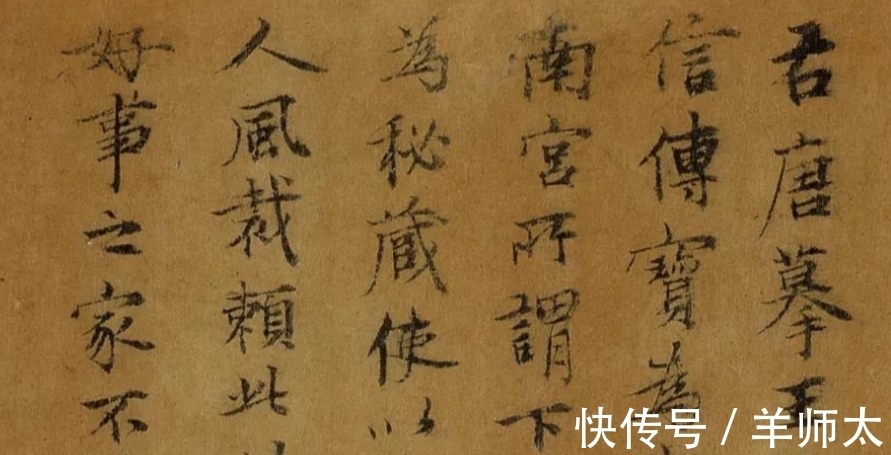 君唐摹王
信傳寶為
南宮所謂下
為秘蔵使以
人風裁賴此
好事之家不
快传号 / 羊师太